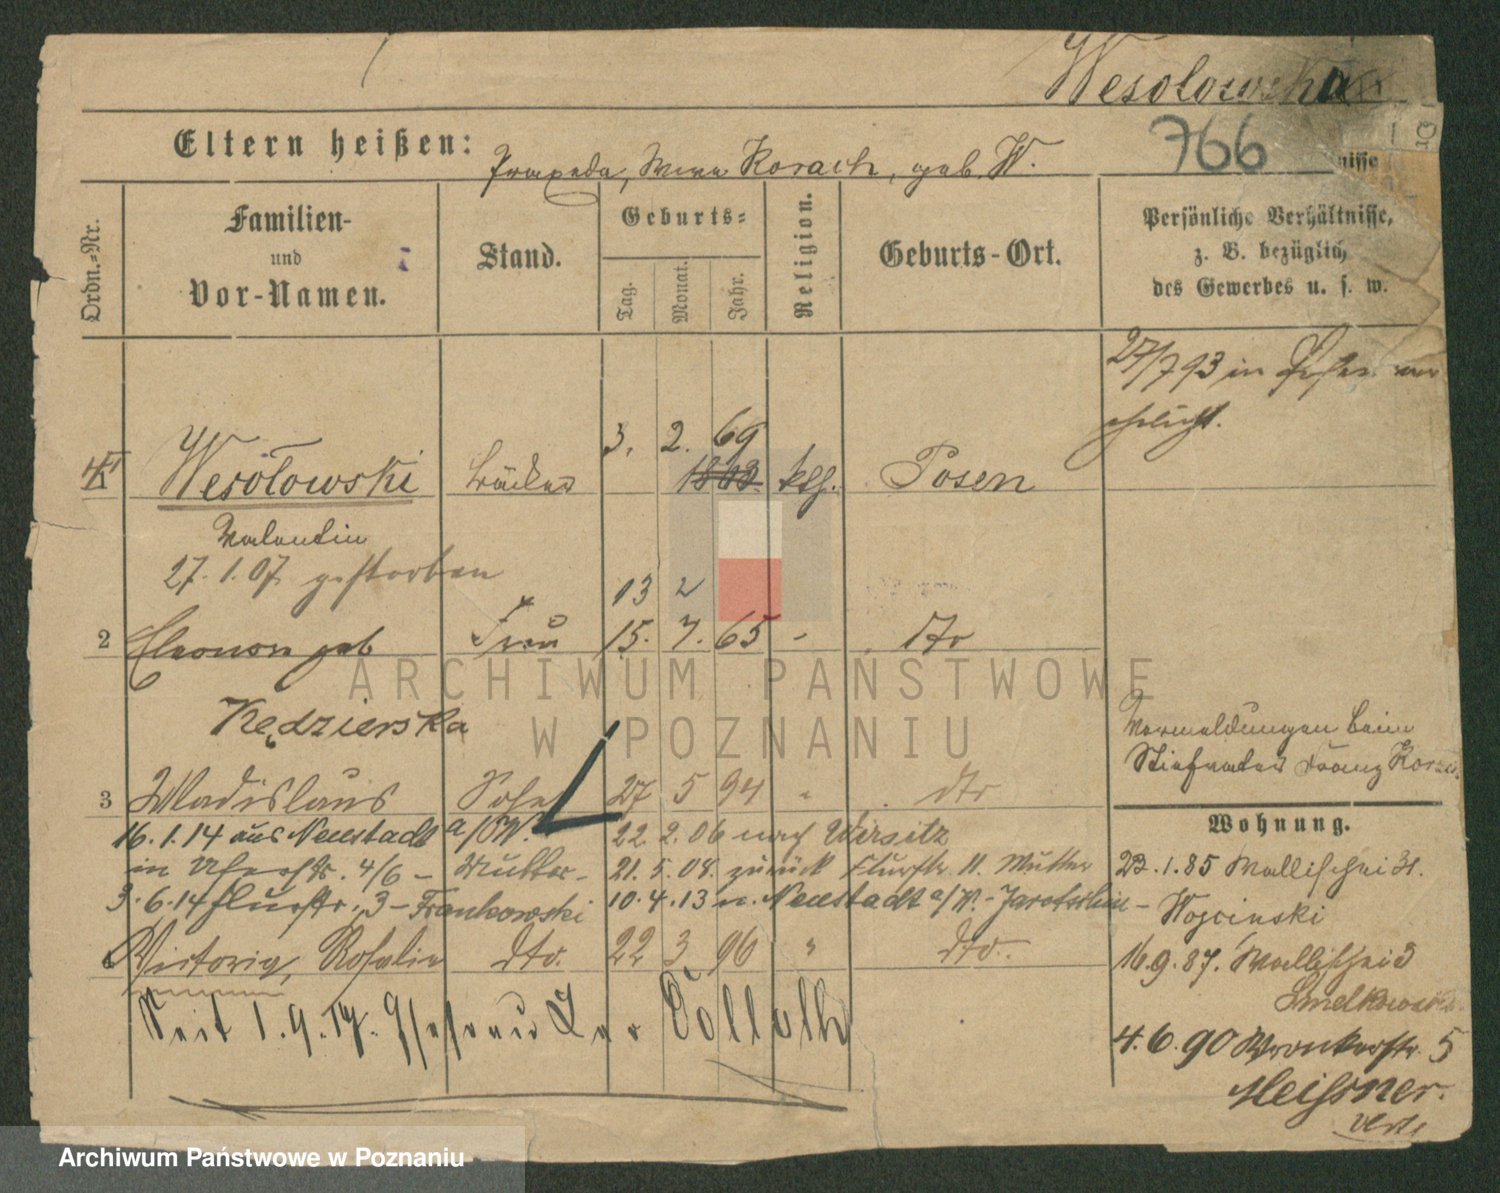 Wesolowska
766
Eltern heißen:
Praxeda, Korach, geb. W.
nisse
Ordn.-Nr.
Familien- und Vor-Namen.
Stand.
Geburts-
Tag.
Monat.
Jahr.
Religion.
Geburts-Ort.
Persönliche Verhältnisse, z. B. bezüglich des Gewerbes u. s. w.
27/7 93 in Posen ver
ehelicht.
3. 2. 69
Wesołowski Bäcker 1863 ktl. Posen
Valentin
27. 1. 07 gestorben
13 2
2 Eleonore geb Frau 15. 7. 65 - dto
Kędzierska
Vermeldungen beim
Stiefvater Franz
3 Wladislaus Sohn 27 5 94 " dto
16.1.14 aus Neustadt a/W. 22. 2. 06 nach Wirsitz
in 4/6 - Mutter - 21. 5. 08. zurück Flurstr. 11. Mutter
3.6.14 Flurstr. 3 - Frankowski 10. 4. 13 n. Neustadt a/W. - Jarotschin -
4 Victoria, Rosalie dto. 22 3 96 " dto.
Seit 1. 9. 17.
Wohnung.
23.1.85 Wallischei 31.
Wojcinski
16.9.87. Wallischei 3
4.6.90 Wronkerstr. 5
Meissner.
verte
ARCHIWUM PAŃSTWOWE
W POZNANIU
Archiwum Państwowe w Poznaniu